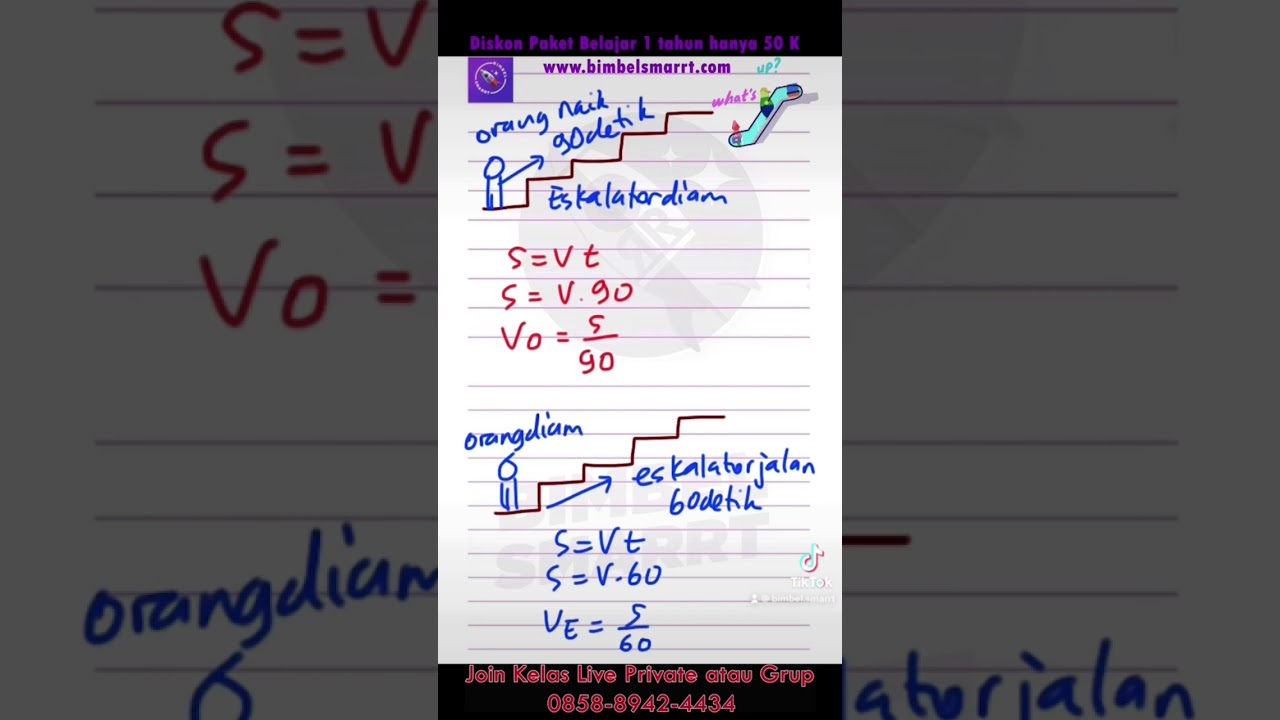 Diskon Paket Belajar 1 tahun hanya 50 K
www.bimbelsmarrt.com
up?
what's
orang naik
90detik
Eskalatordiam
S=Vt
S = V.90
Vo = S/90
orangdiam
eskalatorjalan
60detik
BIMBEL
SMARRT
S=Vt
S = V.60
VE = S/60
TikTok
@bimbelsmarrt
Join Kelas Live Private atau Grup
0858-8942-4434
S=V
S = V
Vo =
orangdiam
latorjalan